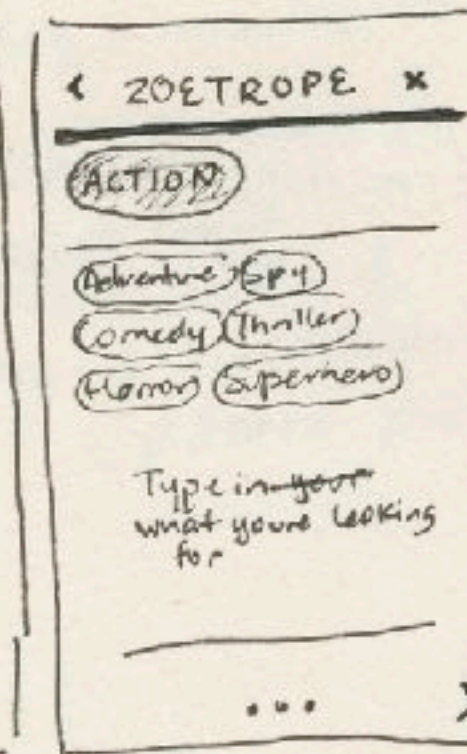 < ZOETROPE x
ACTION
Adventure Spy
Comedy Thriller
Horror Superhero
Type in your
what youre looking
for
...